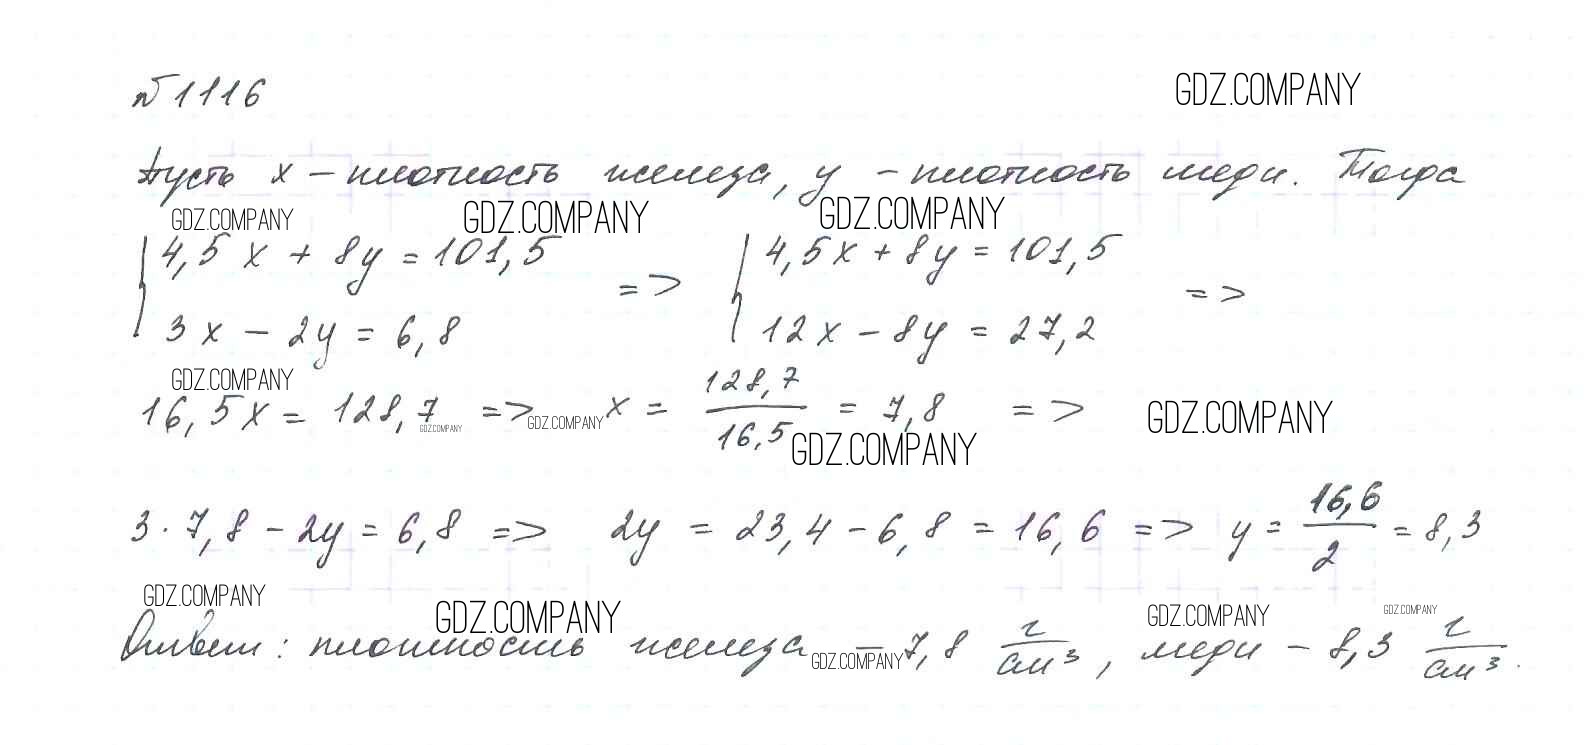 №1116
GDZ.COMPANY
Пусть x – плотность железа, y – плотность меди. Тогда
GDZ.COMPANY GDZ.COMPANY GDZ.COMPANY
{ 4,5x + 8y = 101,5 => { 4,5x + 8y = 101,5 =>
3x – 2y = 6,8 12x – 8y = 27,2
GDZ.COMPANY
16,5x = 128,7 => x = 128,7/16,5 = 7,8 =>
GDZ.COMPANY GDZ.COMPANY GDZ.COMPANY GDZ.COMPANY
3 · 7,8 – 2y = 6,8 => 2y = 23,4 – 6,8 = 16,6 => y = 16,6/2 = 8,3
GDZ.COMPANY GDZ.COMPANY GDZ.COMPANY GDZ.COMPANY
Ответ: плотность железа – 7,8 г/см³, меди – 8,3 г/см³.
GDZ.COMPANY